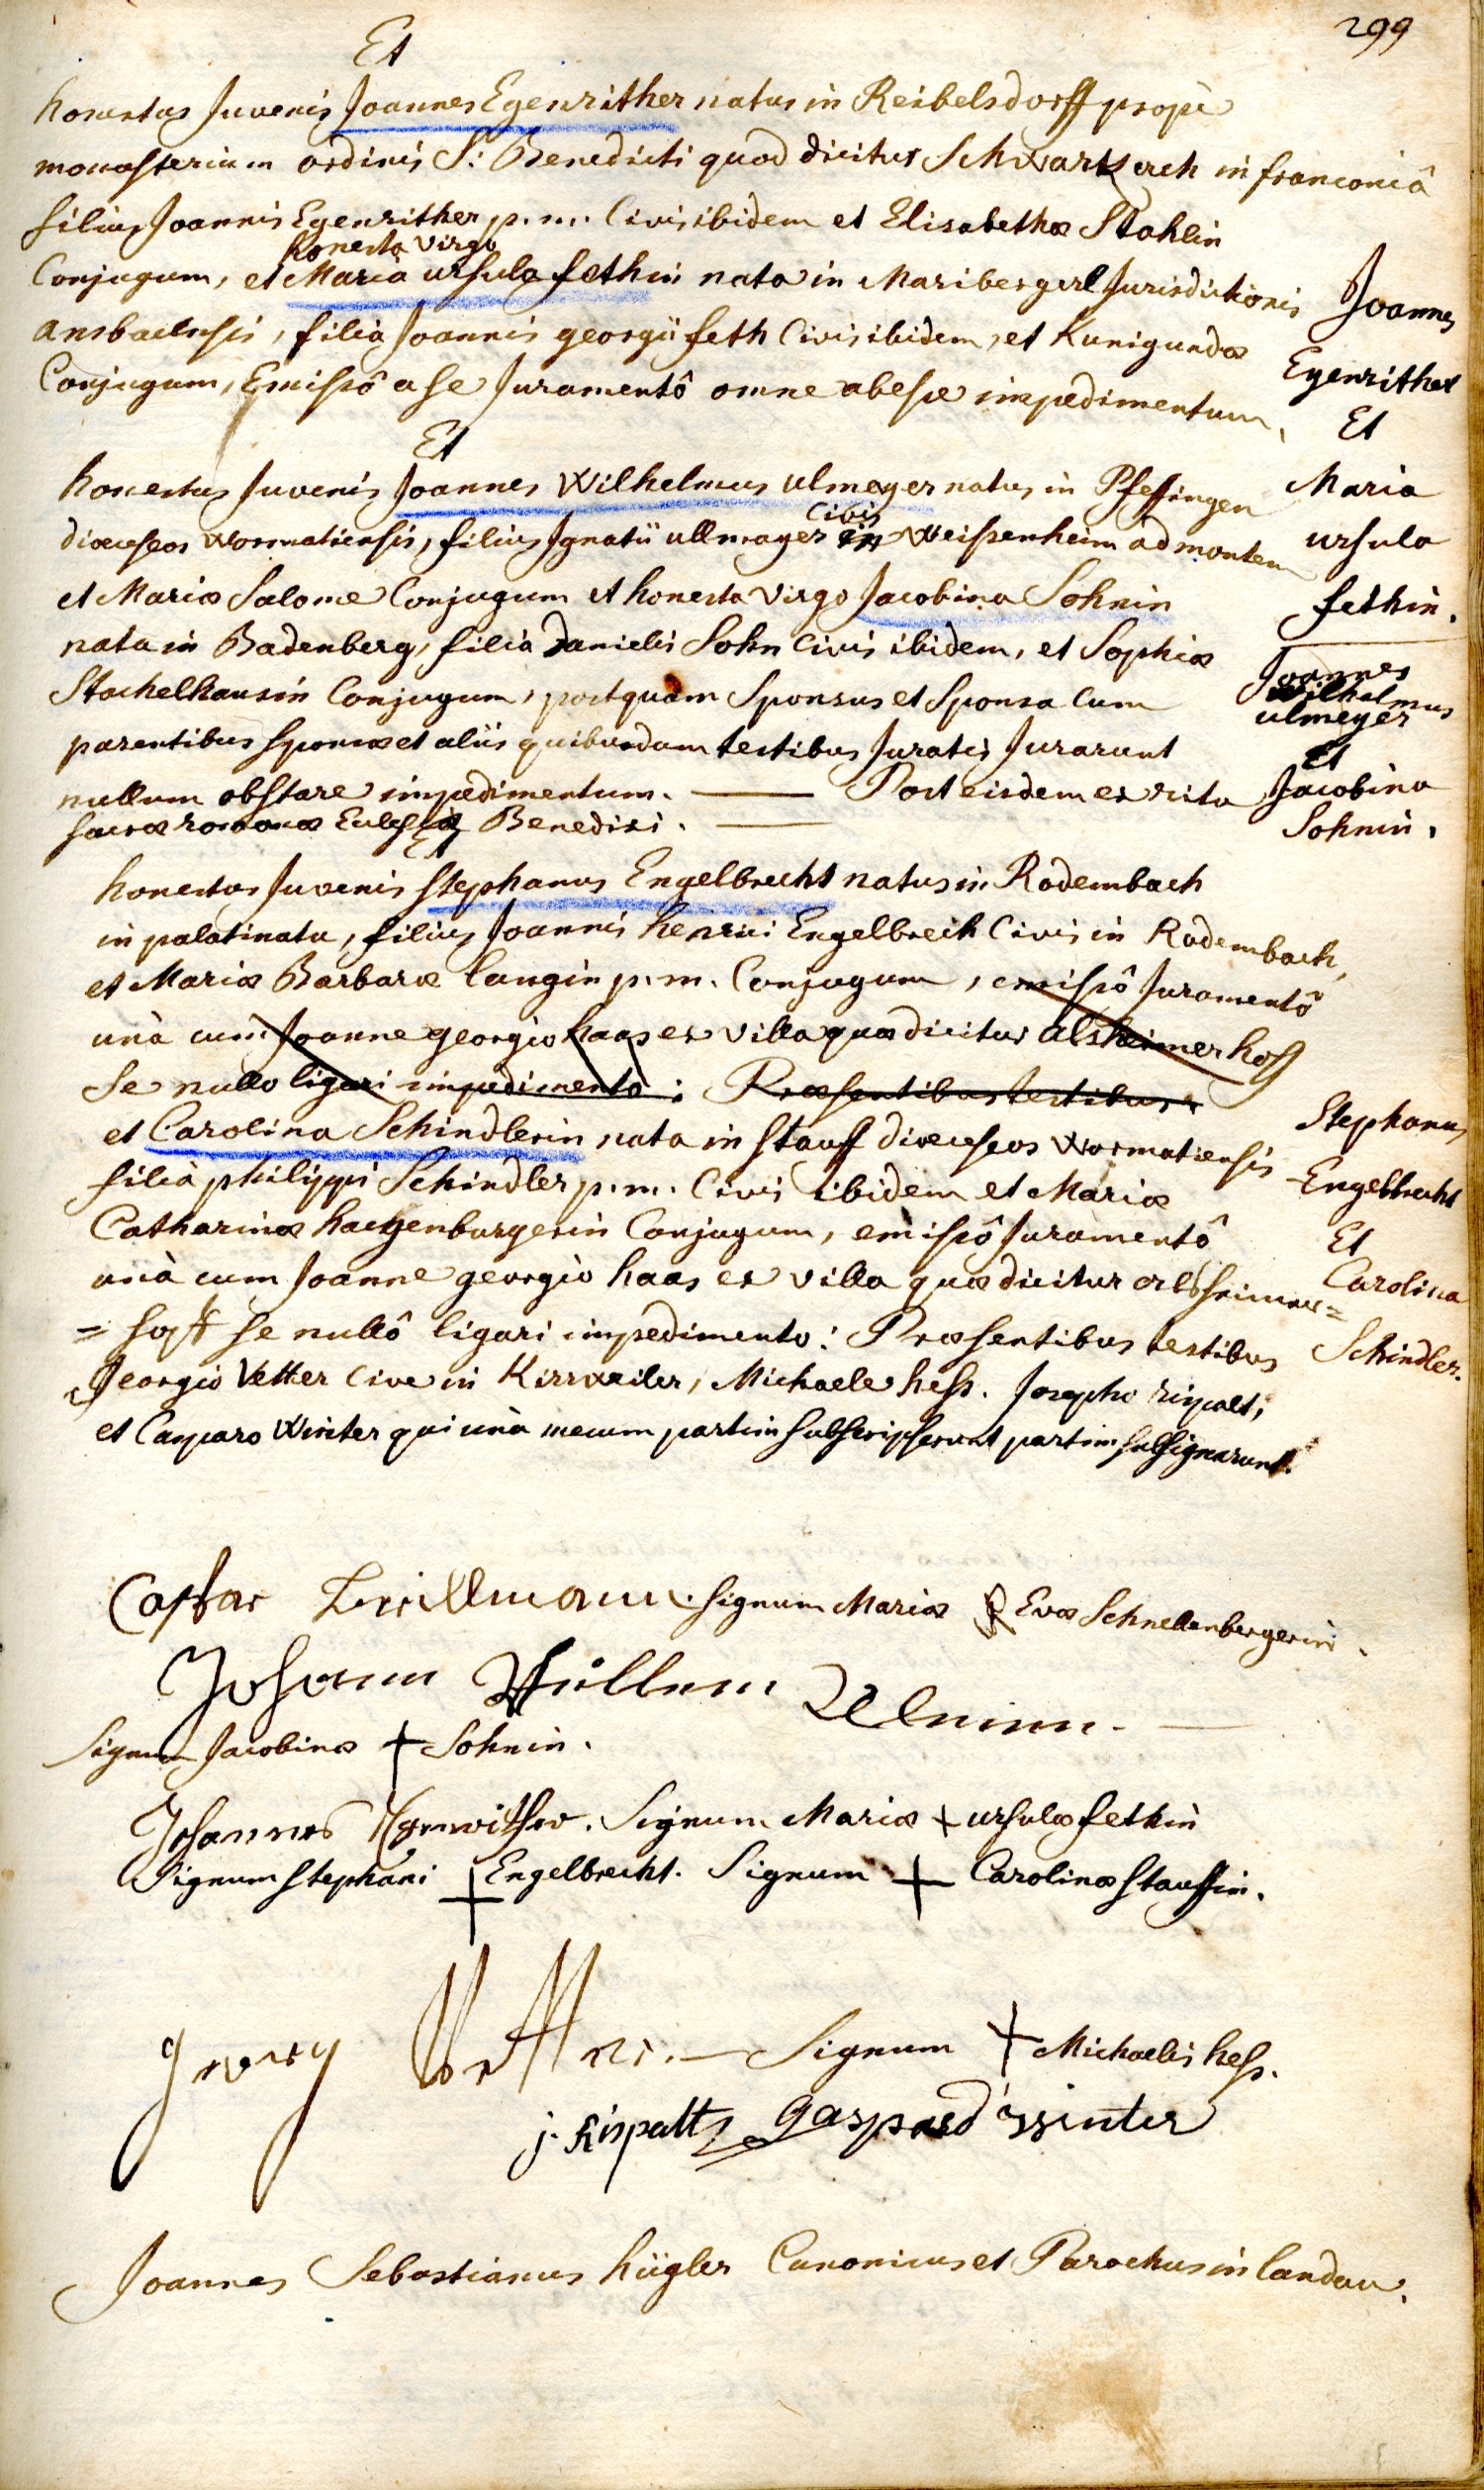 299
Et
honestus Juvenis Joannes Egenrither natus in Reibelsdorff propè
monasterium ordinis S: Benedicti quod dicitur Schwartzach in franconiâ
filius Joannis Egenrither p.m. Civis ibidem et Elisabethæ Stahlin
honesta virgo
Conjugum, et Maria ursula fethin nata in Maribergerl Jurisdictionis
ansbacensis, filia Joannis georgii feth Civis ibidem, et Kunigundæ
Conjugum, Emissô a se Juramentô omne abesse impedimentum,
Joannes
Egenrither
Et
Maria
ursula
fethin.
Et
honestus Juvenis Joannes Wilhelmus ulmeyer natus in Pfeffingen
civis
dioeceseos wormatiensis, filius Ignatii ullmayer in Weissenheim ad montem
et Mariæ Salome Conjugum et honesta virgo Jacobina Sohnin
nata in Badenberg, filia Danielis Sohn Civis ibidem, et Sophiæ
Stachelhausin Conjugum, postquam Sponsus et Sponsa Cum
parentibus sponsæ et aliis quibusdam testibus Juratis Jurarunt
nullum obstare impedimentum. — Post eisdem ex ritu
sacræ romanæ Eclesiæ Benedixi. —
Joannes
Wilhelmus
ulmeyer
Et
Jacobina
Sohnin.
Et
honestus Juvenis stephanus Engelbrecht natus in Rodembach
in palatinatu, filius Joannis henrici Engelbrech Civis in Rodembach,
et Mariæ Barbaræ langin p.m. Conjugum, emissô Juramentô
unà cum Joanne georgio haas ex villa quæ dicitur alsheimer hoff
se nullo ligari impedimento: Præsentibus testibus
et Carolina Schindlerin nata in stauff dioeceseos wormatiensis
filia philippi Schindler p.m. Civis ibidem et Mariæ
Catharinæ hacgenburgerin Conjugum, emissô Juramentô
unà cum Joanne georgio haas ex villa quæ dicitur alsheimer=
= hoff se nullô ligari impedimento: Præsentibus testibus
Georgio Vetter Cive in Kirrweiler, Michaele hess. Josepho rispalt,
et Casparo Winter qui unà mecum partim subscripserunt partim subsignarunt.
Stephanus
Engelbrecht
Et
Carolina
Schindler.
Casbar signum Mariæ Evæ Schnellenbergerin.
Johann Willem
Signum Jacobinæ + Sohnin.
Johannes Egenrither. Signum Mariæ + ursulæ fethin
Signum stephani + Engelbrecht. Signum + Carolinæ stauffin.
Jerry Vetter. — Signum + Michaelis hess.
j. Rispalt gaspard winter
Joannes Sebastianus hügler Canonicus et Parochus in landau.